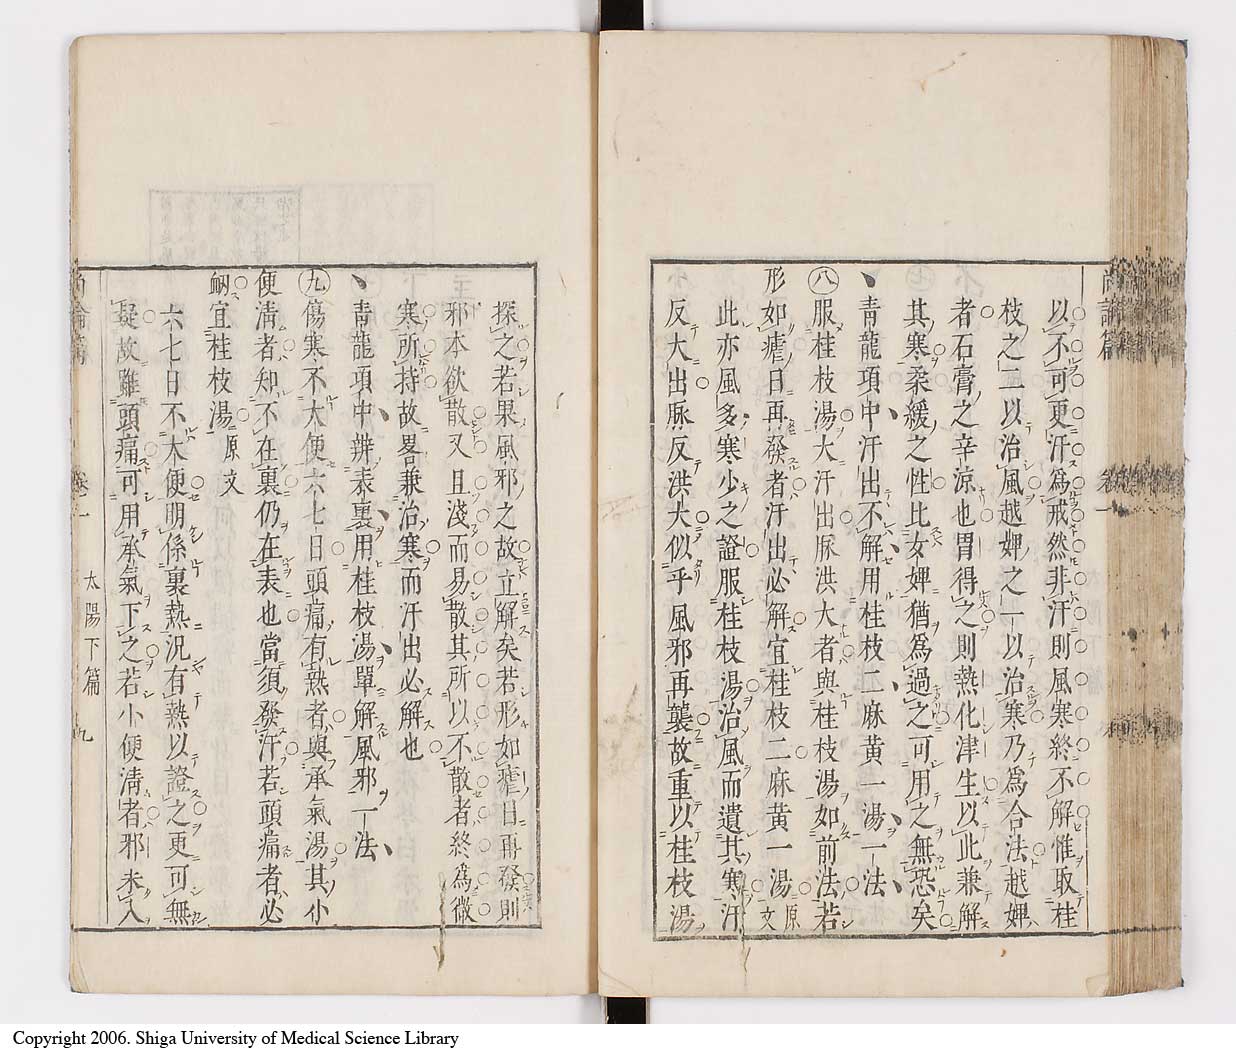 以不可更汗爲戒然非汗則風寒終不解惟取桂
枝之二以治風越婢之一以治寒乃爲合法越婢
者石膏之辛涼也胃得之則熱化津生以此兼解
其寒柔緩之性比女婢猶爲過之可用之無恐矣
青龍項中汗出不解用桂枝二麻黄一湯一法
八服桂枝湯大汗出脈洪大者與桂枝湯如前法若
形如瘧日再發者汗出必解宜桂枝二麻黄一湯原文
此亦風多寒少之證服桂枝湯治風而遺其寒汗
反大出脈反洪大似乎風邪再襲故重以桂枝湯
探之若果風邪之故立解矣若形如瘧日再發則
邪本欲散又且淺而易散其所以不散者終爲微
寒所持故畧兼治寒而汗出必解也
青龍項中辨表裏用桂枝湯單解風邪一法
九傷寒不大便六七日頭痛有熱者與承氣湯其小
便清者知不在裏仍在表也當須發汗若頭痛者必
衂宜桂枝湯原文
六七日不大便明係裏熱況有熱以證之更可無
疑故雖頭痛可用承氣下之若小便清者邪未入
尚論篇 卷一 太陽下篇 九
Copyright 2006. Shiga University of Medical Science Library